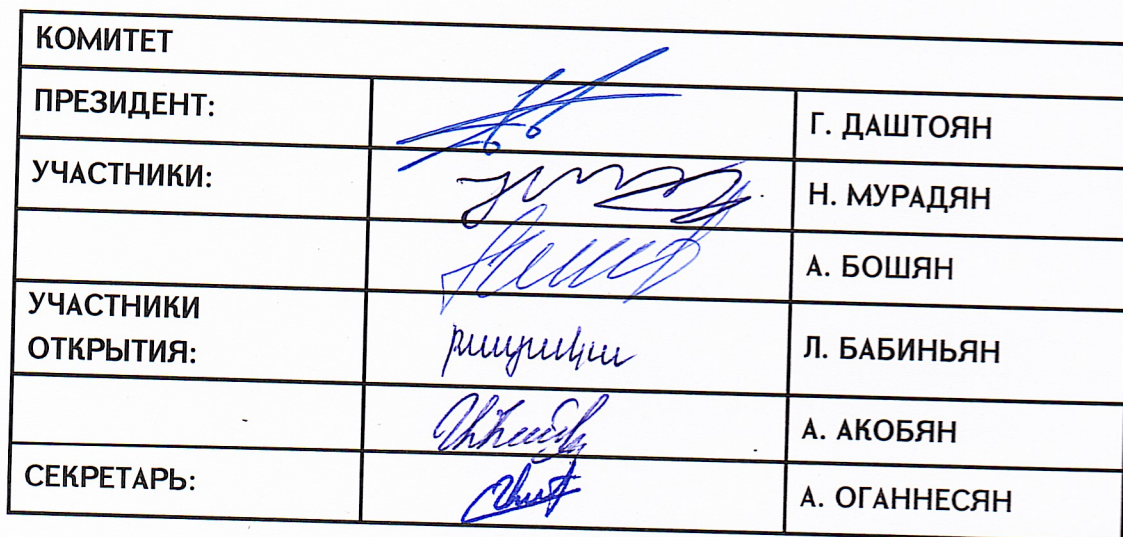 КОМИТЕТ
ПРЕЗИДЕНТ: Г. ДАШТОЯН
УЧАСТНИКИ: Н. МУРАДЯН
А. БОШЯН
УЧАСТНИКИ
ОТКРЫТИЯ: Л. БАБИНЬЯН
А. АКОБЯН
СЕКРЕТАРЬ: А. ОГАННЕСЯН